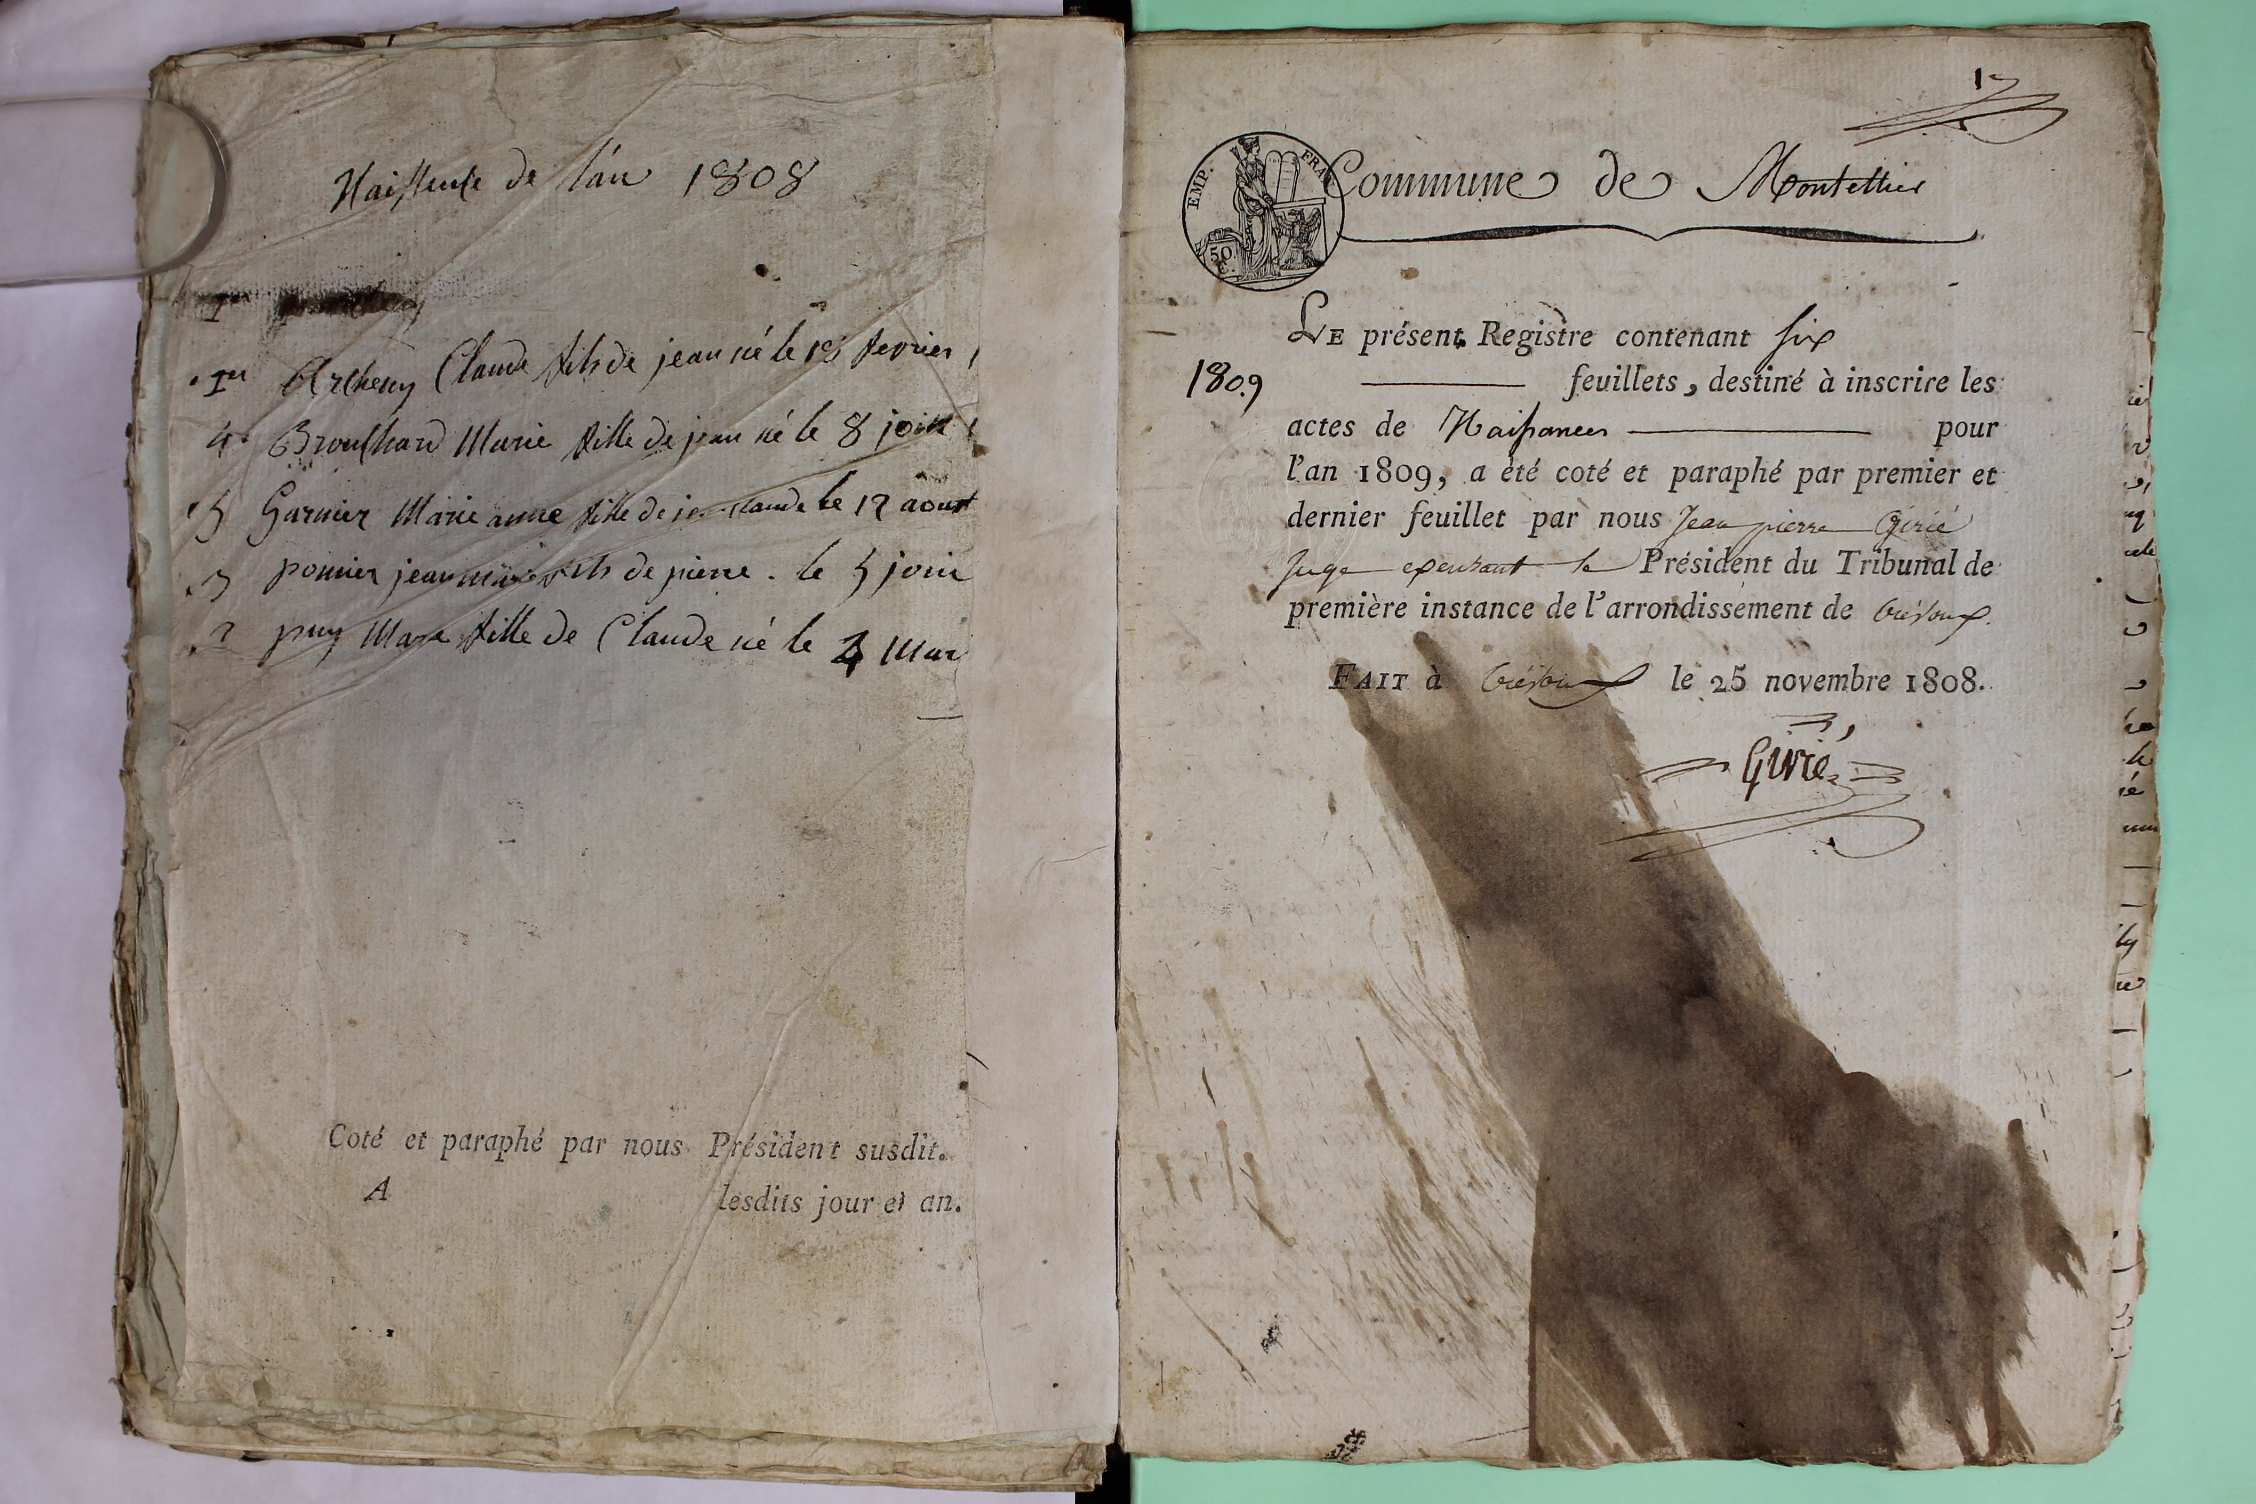 Naissence de l'an 1808
1er
1er Archeny Claude fils de jean né le 18 fevrier
4 Brouchard Marie fille de jean né le 8 join
5 Garnier Marie anne fille de jean claude le 12 aoust
3 ponnier jean marie fils de pierre . le 5 join
2 puy Marie fille de Claude né le 4 Mar
Coté et paraphé par nous Président susdit.
A lesdits jour et an.
1
EMP. FRA
50 C.
Commune de Montellier
LE présent Registre contenant six
1809
feuillets, destiné à inscrire les
actes de Naissances pour
l'an 1809, a été coté et paraphé par premier et
dernier feuillet par nous Jean pierre Girié
Juge exerçant le Président du Tribunal de
première instance de l'arrondissement de trévoux.
FAIT à trévoux le 25 novembre 1808.
Girié